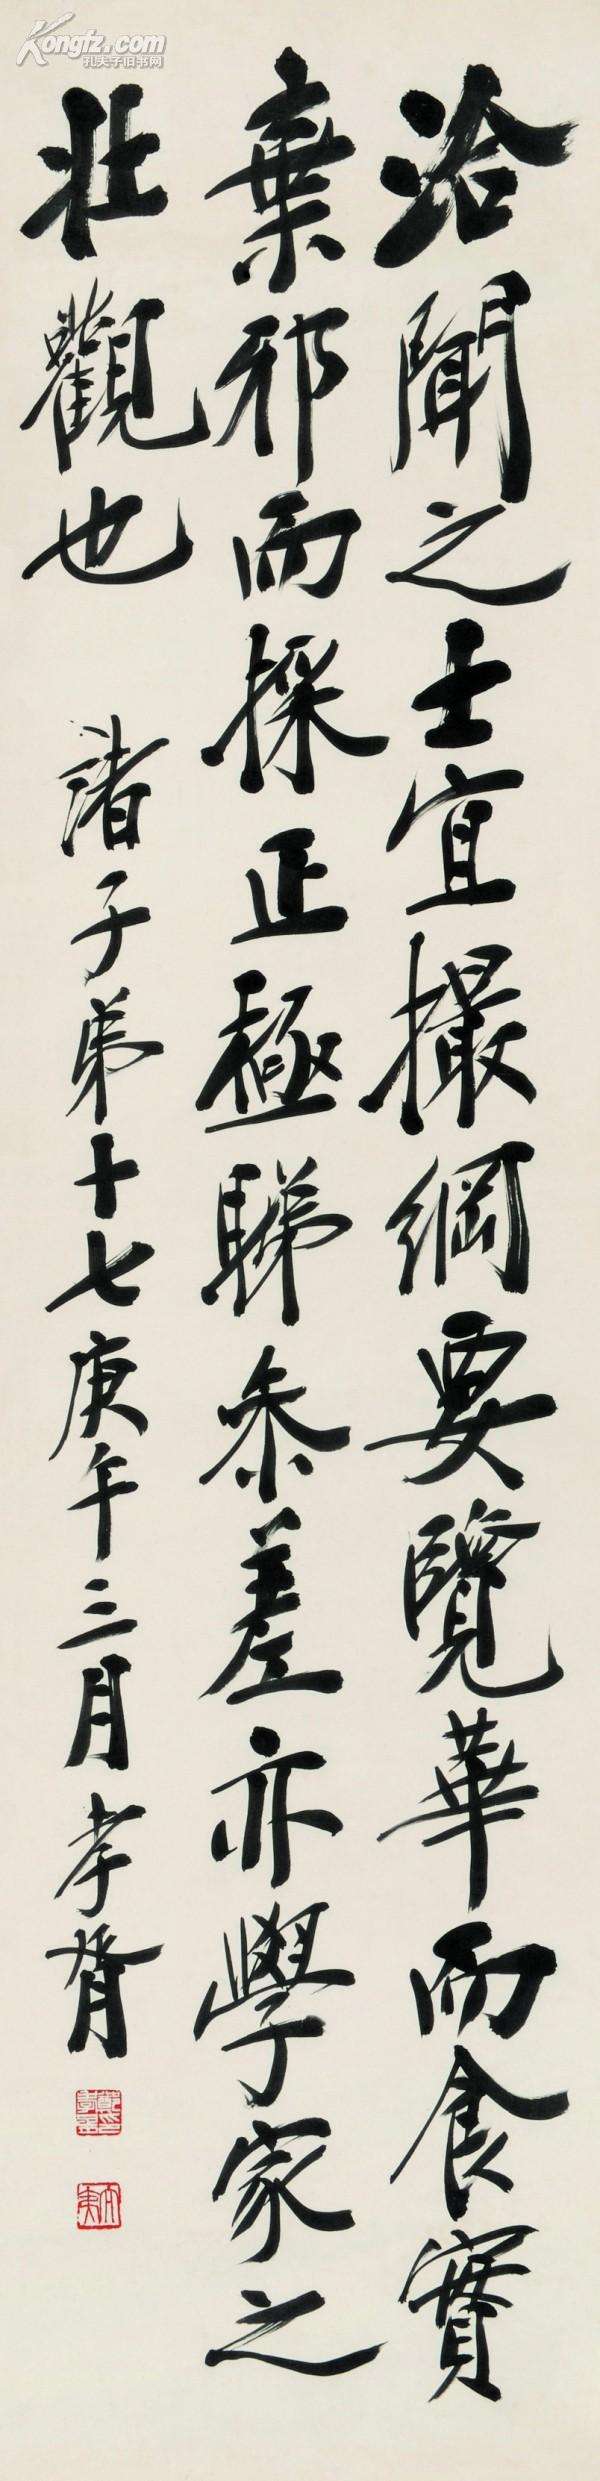 洽聞之士宜撮綱要覽華而食實
棄邪而採正極睇參差亦學家之
壯觀也
諸子弟十七庚午三月孝胥
Kongfz.com
孔夫子旧书网